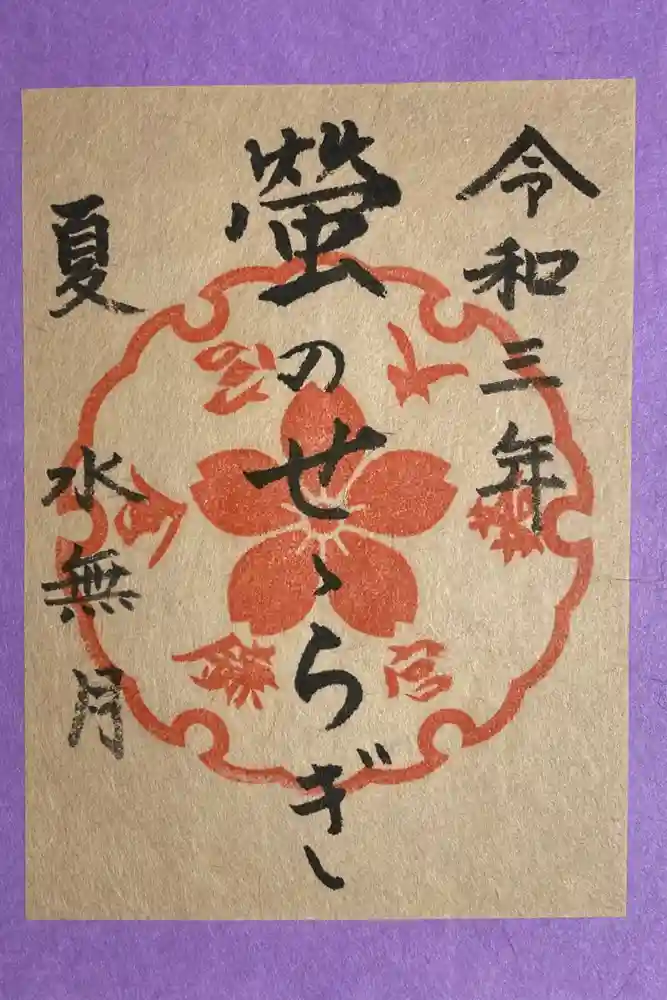 令和三年
螢のせゝらぎ
夏 水無月